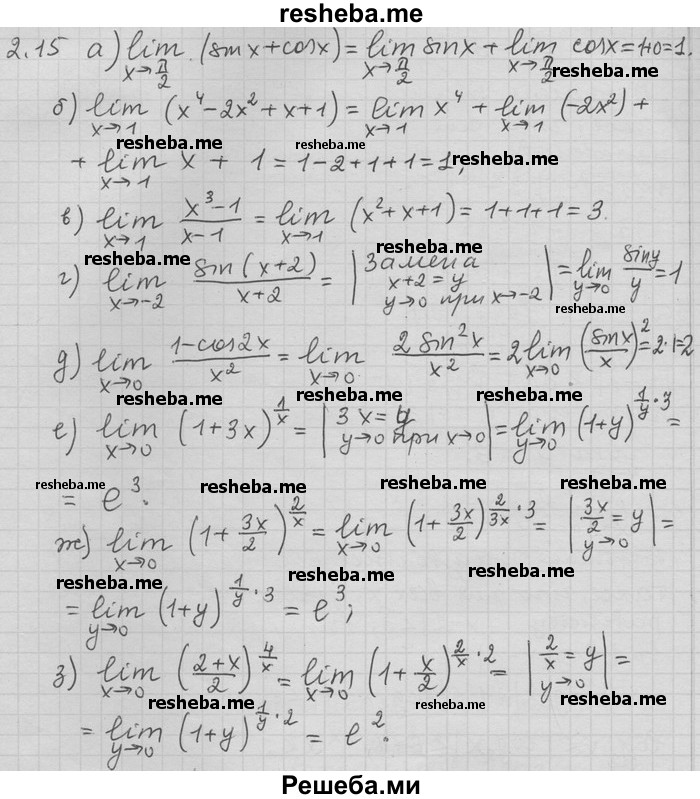 resheba.me
2.15 а) lim x→π/2 (sin x + cos x) = lim x→π/2 sin x + lim x→π/2 cos x = 1+0=1.
resheba.me
б) lim x→1 (x⁴ - 2x² + x + 1) = lim x→1 x⁴ + lim x→1 (-2x²) +
resheba.me resheba.me
+ lim x→1 x + 1 = 1-2+1+1=1,
resheba.me
в) lim x→1 (x³-1)/(x-1) = lim x→1 (x²+x+1) = 1+1+1=3.
resheba.me resheba.me
г) lim x→-2 sin(x+2)/(x+2) = | Замена x+2=y y→0 при x→-2 | = lim y→0 sin y/y = 1
resheba.me resheba.me
д) lim x→0 (1-cos2x)/x² = lim x→0 2sin²x/x² = 2 lim x→0 (sin x/x)² = 2·1=2
resheba.me resheba.me resheba.me
е) lim x→0 (1+3x)^(1/x) = | 3x=y y→0 при x→0 | = lim y→0 (1+y)^(1/y · 3) =
resheba.me resheba.me resheba.me
= e³.
ж) lim x→0 (1+3x/2)^(2/x) = lim x→0 (1+3x/2)^(2/3x · 3) = | 3x/2=y y→0 | =
resheba.me resheba.me resheba.me
= lim y→0 (1+y)^(1/y · 3) = e³;
resheba.me resheba.me
з) lim x→0 ((2+x)/2)^(4/x) = lim x→0 (1+x/2)^(2/x · 2) = | 2/x=y y→0 | =
resheba.me resheba.me resheba.me
= lim y→0 (1+y)^(1/y · 2) = e².
resheba.me
Решеба.ми